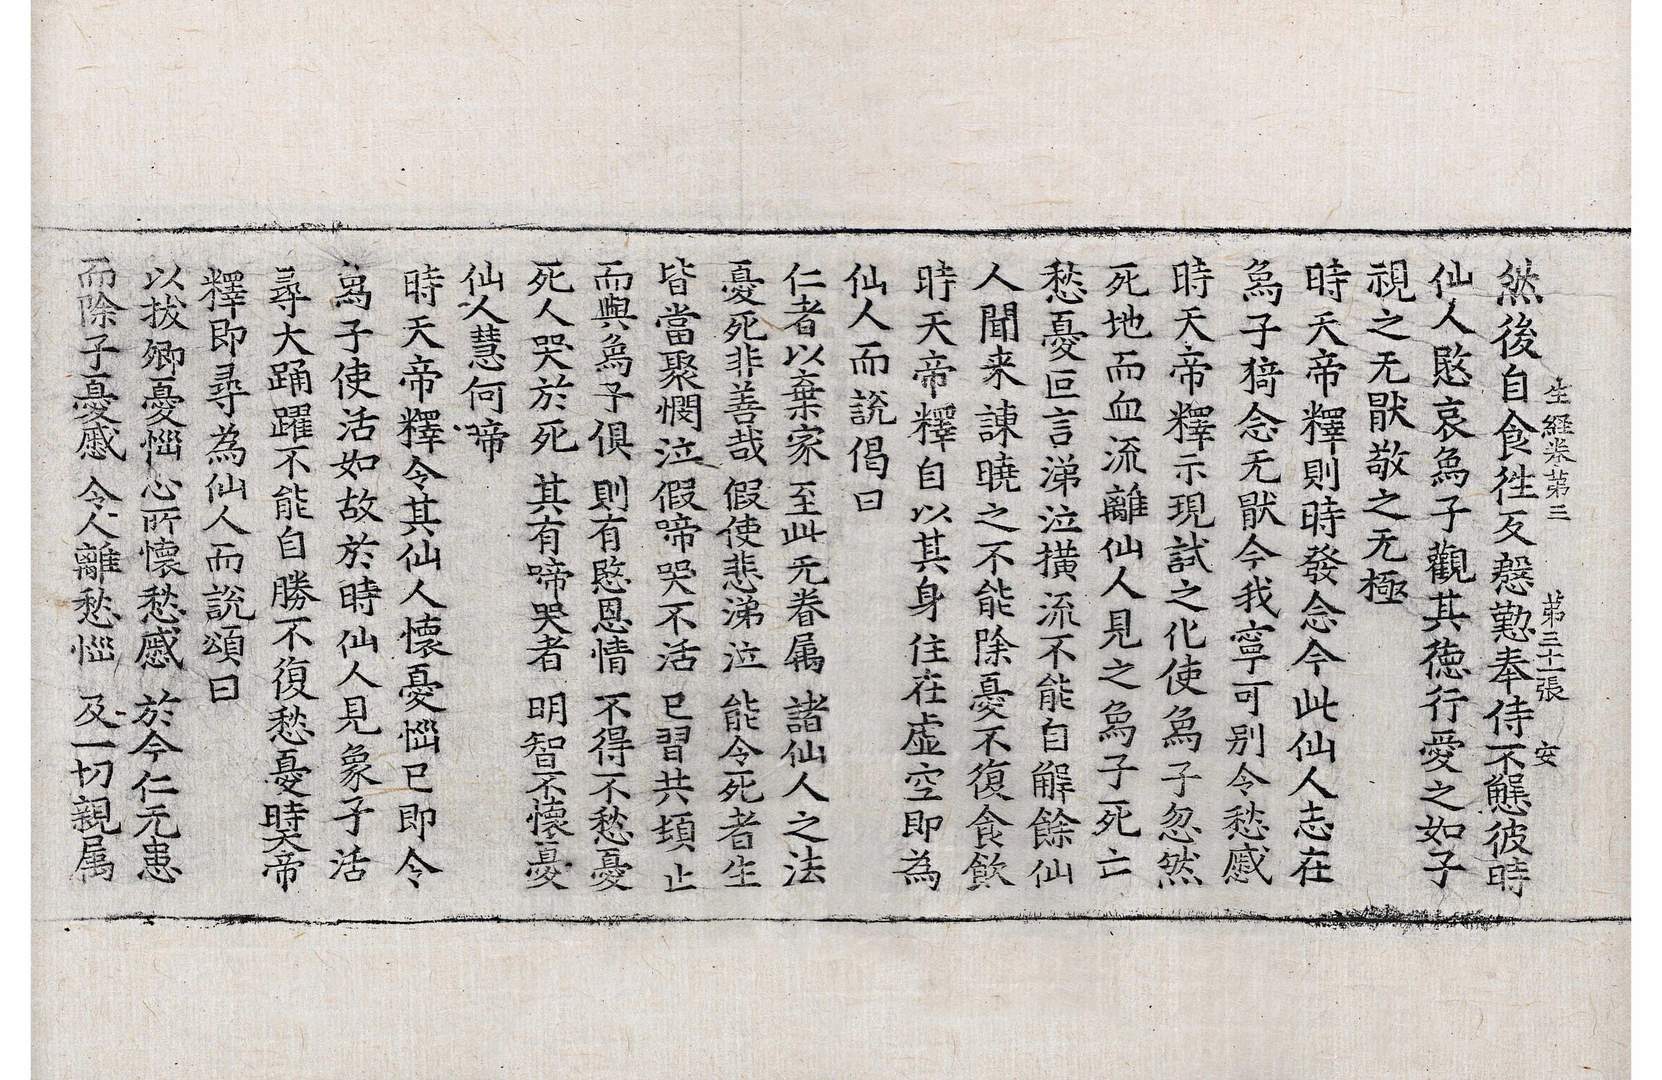 生經卷第三　第三十一張　安
然後自食徃反慇懃奉侍不懈彼時
仙人愍哀爲子觀其德行愛之如子
視之无猒敬之无極
時天帝釋則時發念今此仙人志在
爲子猗念无猒今我寧可別令愁慼
時天帝釋示現試之化使爲子忽然
死地而血流離仙人見之爲子死亡
愁憂叵言涕泣橫流不能自解餘仙
人聞来諫曉之不能除憂不復食飲
時天帝釋自以其身住在虛空即為
仙人而說偈曰
仁者以棄家　至此无眷属　諸仙人之法
憂死非善哉　假使悲涕泣　能令死者生
皆當聚憫泣　假啼哭不活　已習共頞止
而與爲子俱　則有愍恩情　不得不愁憂
死人哭於死　其有啼哭者　明智不懷憂
仙人慧何啼
時天帝釋令其仙人懷憂惱已即令
爲子使活如故於時仙人見象子活
尋大踊躍不能自勝不復愁憂時天帝
釋即尋為仙人而說頌曰
以拔卿憂惱　心所懷愁慼　於今仁无患
而除子憂慼　令人離愁惱　及一切親属